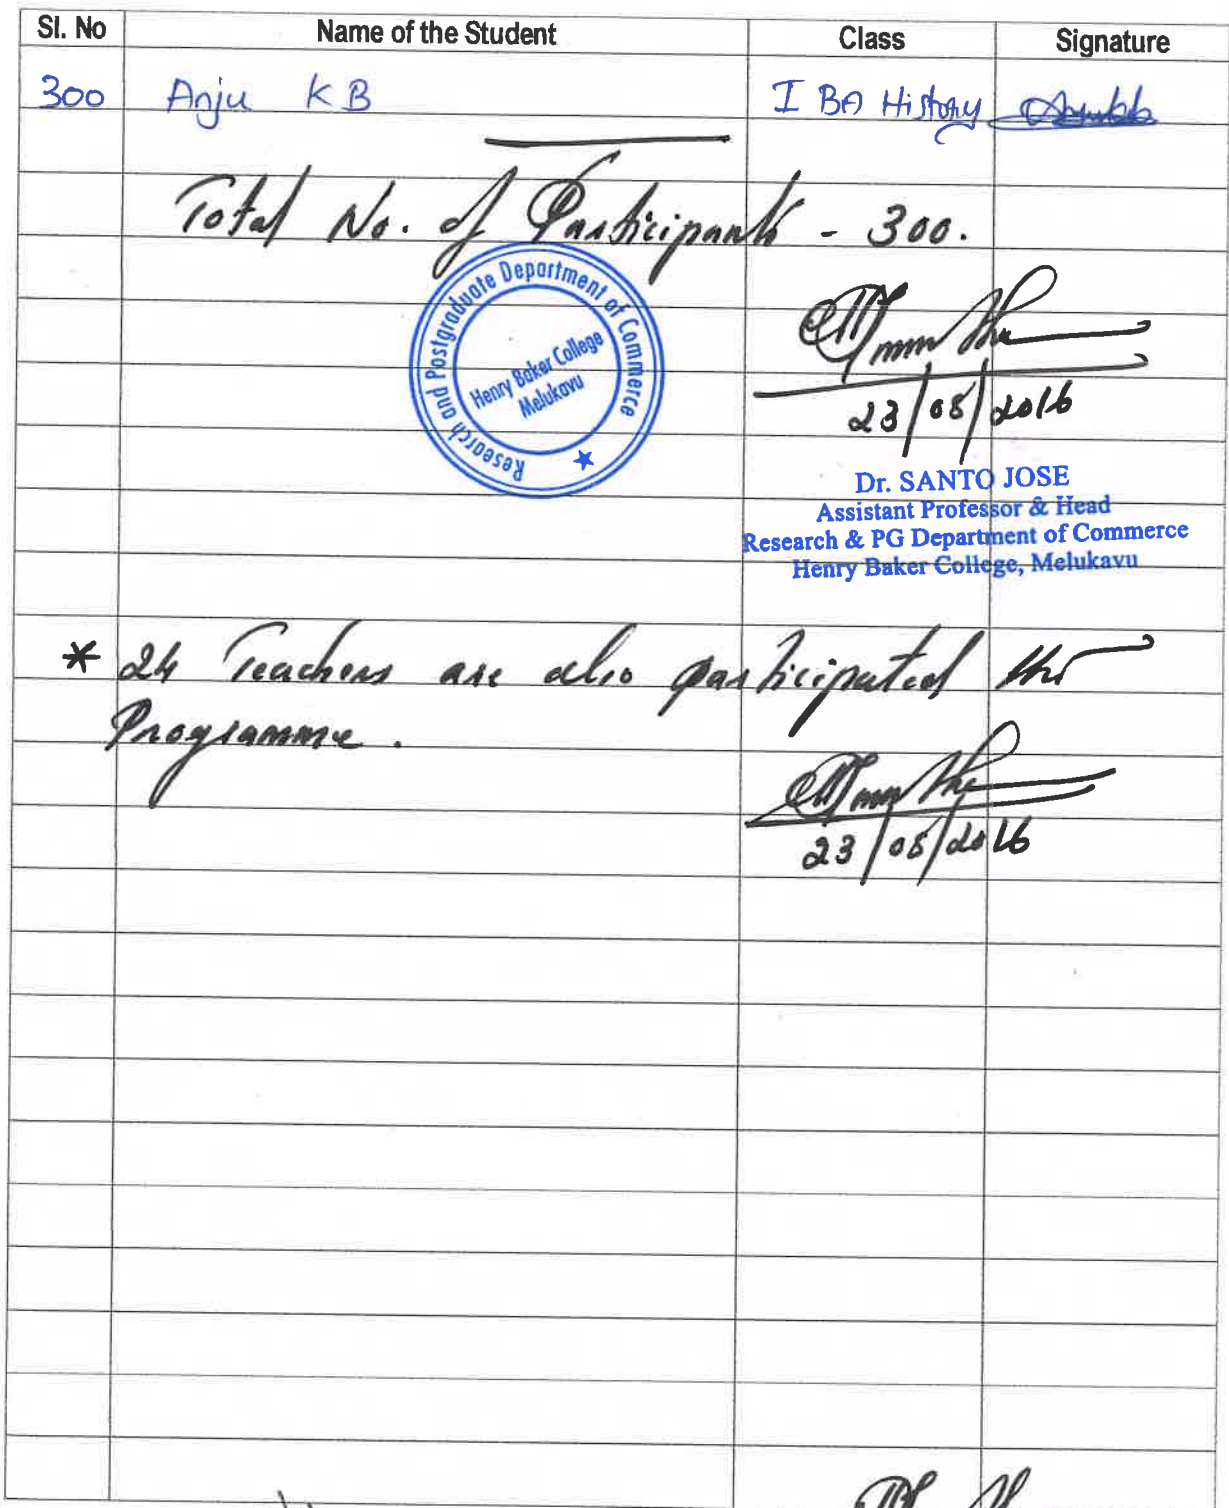 Sl. No Name of the Student Class Signature
300 Anju K B I BA History
Total No. of Participants - 300.
Research and Postgraduate Department of Commerce
Henry Baker College
Melukavu
23/08/2016
Dr. SANTO JOSE
Assistant Professor & Head
Research & PG Department of Commerce
Henry Baker College, Melukavu
* 24 Teachers are also participated the
Programme.
23/08/2016